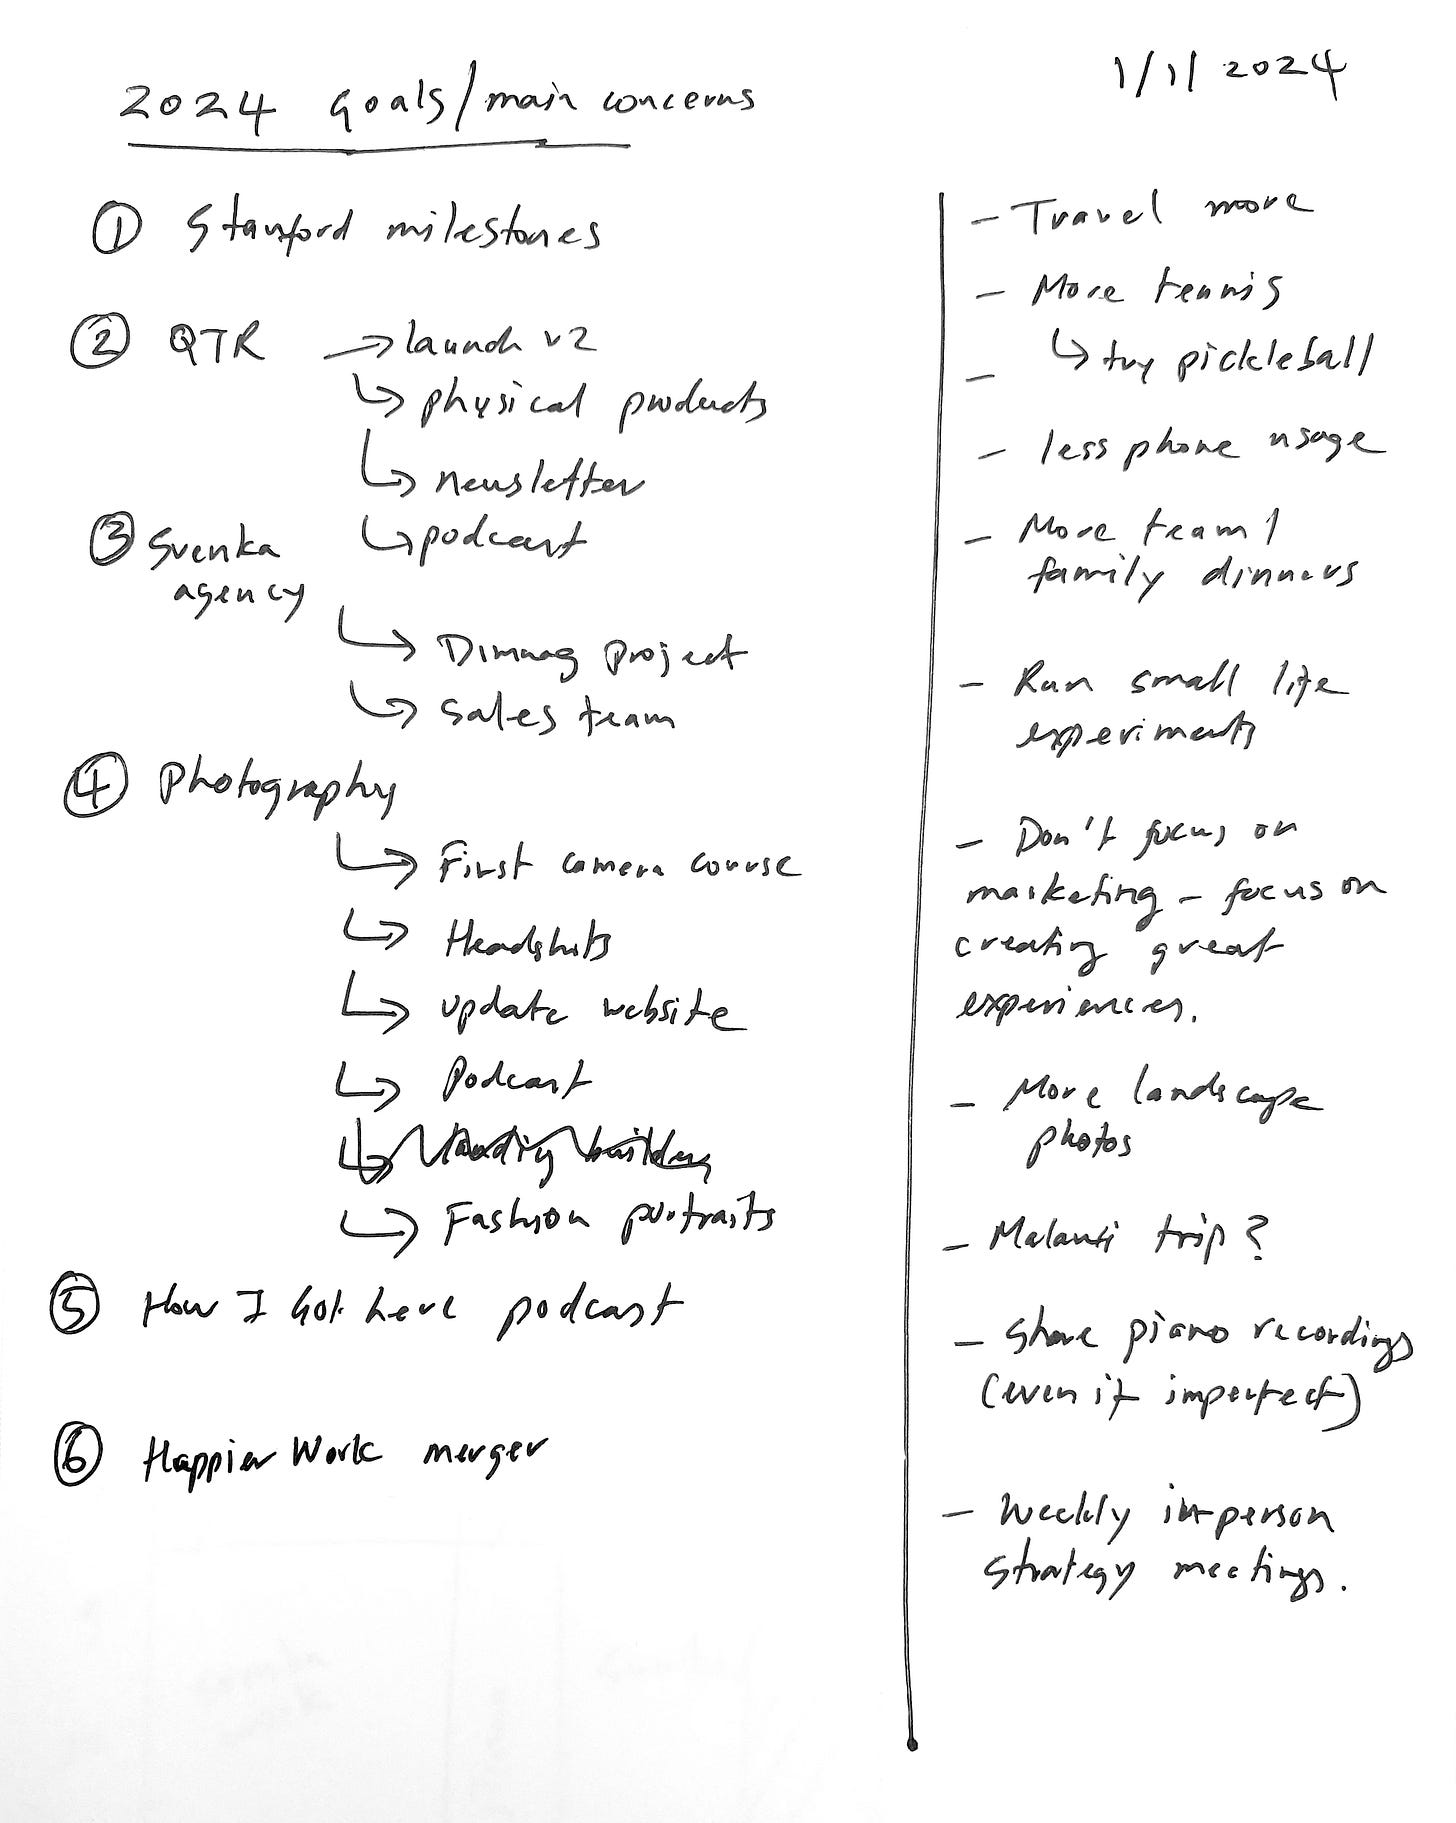 2024 Goals/main concerns
1/1/2024
① Stanford milestones
② QTR → launch v2
↳ physical products
↳ newsletter
↳ podcast
③ Svenka
agency
↳ Dimnag project
↳ sales team
④ Photography
↳ First camera course
↳ Headshots
↳ update website
↳ Podcast
↳
↳ Fashion portraits
⑤ How I Got here podcast
⑥ Happier Work merger
– Travel more
– More tennis
↳ try pickleball
–
– less phone usage
– More team/
family dinners
– Run small life
experiments
– Don't focus on
marketing – focus on
creating great
experiences.
– More landscape
photos
– Malawi trip?
– Share piano recordings
(even if imperfect)
– Weekly in-person
strategy meetings.